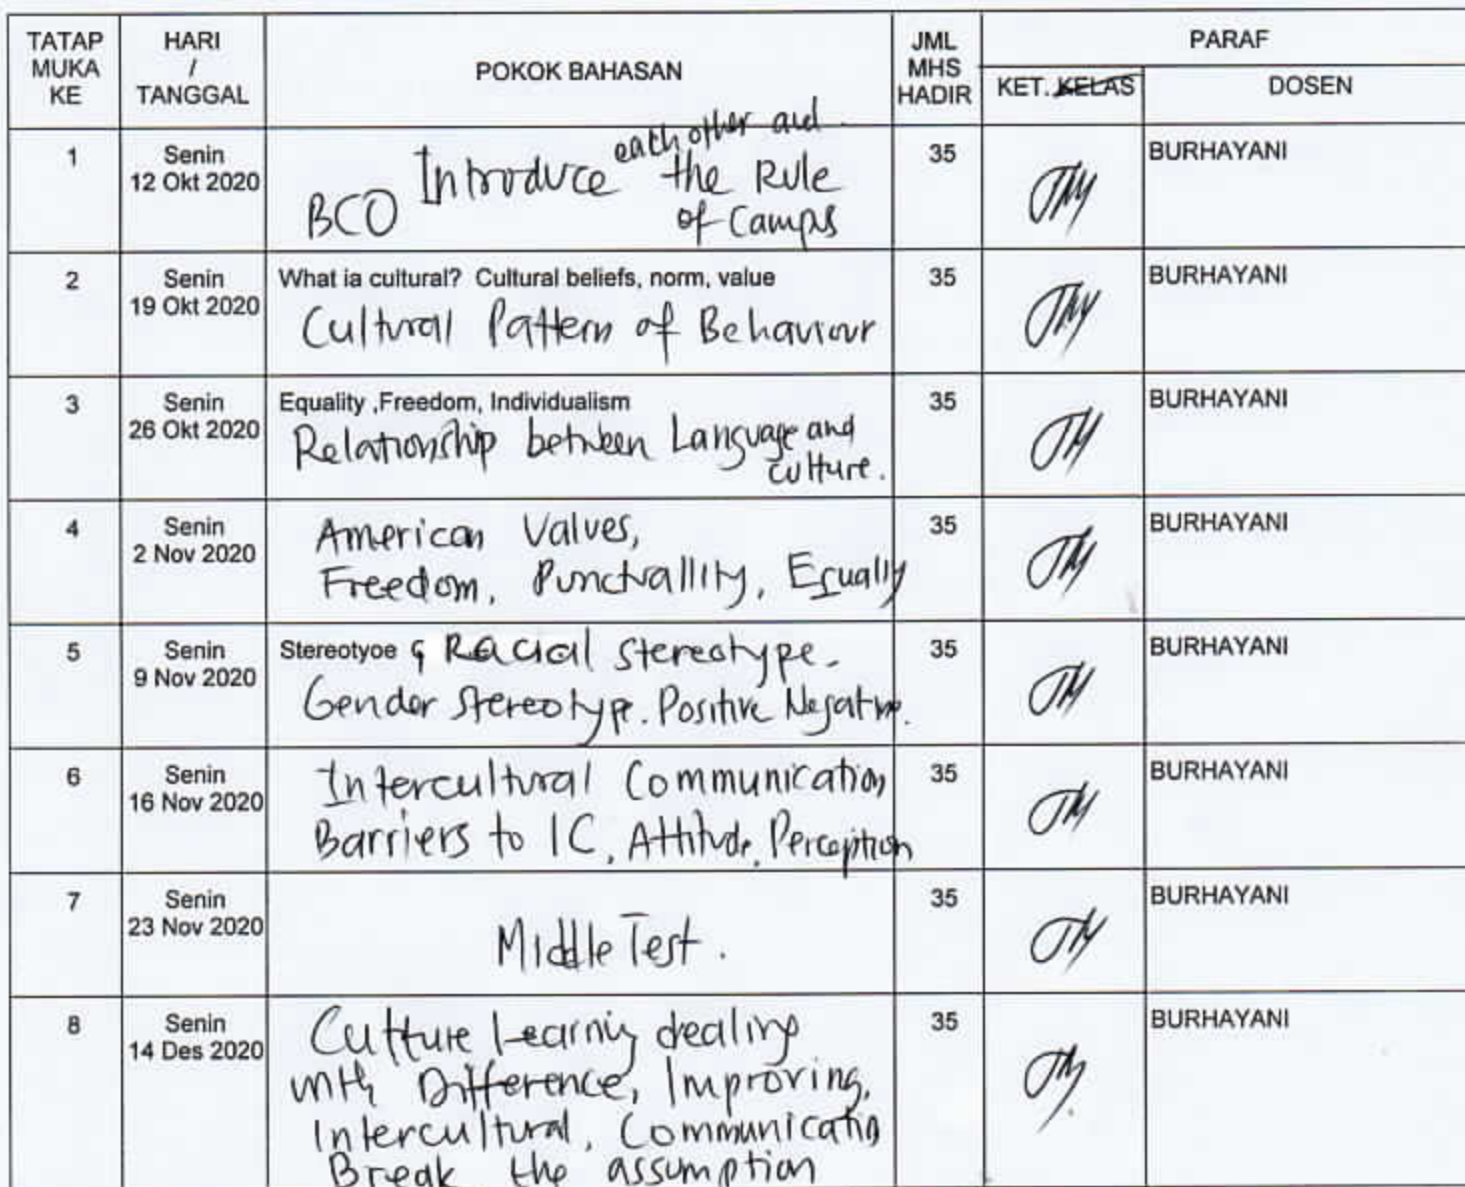 TATAP MUKA KE
HARI / TANGGAL
POKOK BAHASAN
JML MHS HADIR
PARAF
KET. KELAS
DOSEN
1
Senin
12 Okt 2020
each other and
Introduce the Rule
BCO of Camps
35
BURHAYANI
2
Senin
19 Okt 2020
What ia cultural? Cultural beliefs, norm, value
Cultural Pattern of Behaviour
35
BURHAYANI
3
Senin
26 Okt 2020
Equality ,Freedom, Individualism
Relationship between Language and
culture.
35
BURHAYANI
4
Senin
2 Nov 2020
American Values,
Freedom, Punctuallity, Equally
35
BURHAYANI
5
Senin
9 Nov 2020
Stereotyoe & Racial stereotype.
Gender stereotype. Positive Negative.
35
BURHAYANI
6
Senin
16 Nov 2020
Intercultural Communication
Barriers to IC, Attitude, Perception
35
BURHAYANI
7
Senin
23 Nov 2020
Middle Test.
35
BURHAYANI
8
Senin
14 Des 2020
Culture Learning dealing
with Difference, Improving,
Intercultural, Communicatio
Break the assumption
35
BURHAYANI